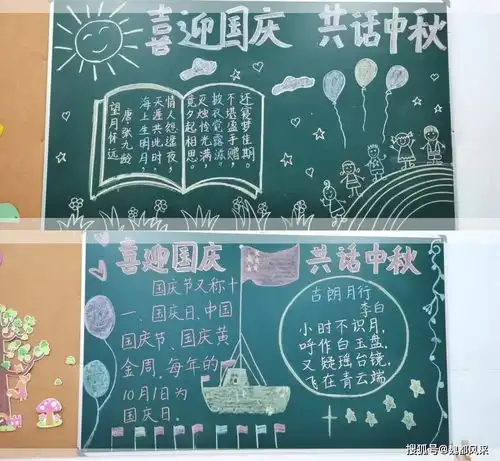 喜迎国庆 共话中秋
望月怀远
唐 张九龄
海上生明月,
天涯共此时。
情人怨遥夜,
竟夕起相思。
灭烛怜光满,
披衣觉露滋。
不堪盈手赠,
还寝梦佳期。
喜迎国庆 共话中秋
国庆节又称十
一、国庆日、中国
国庆节、国庆黄
金周,每年的
10月1日为
国庆日。
古朗月行
李白
小时不识月,
呼作白玉盘。
又疑瑶台镜,
飞在青云端
搜狐号@魏都风采